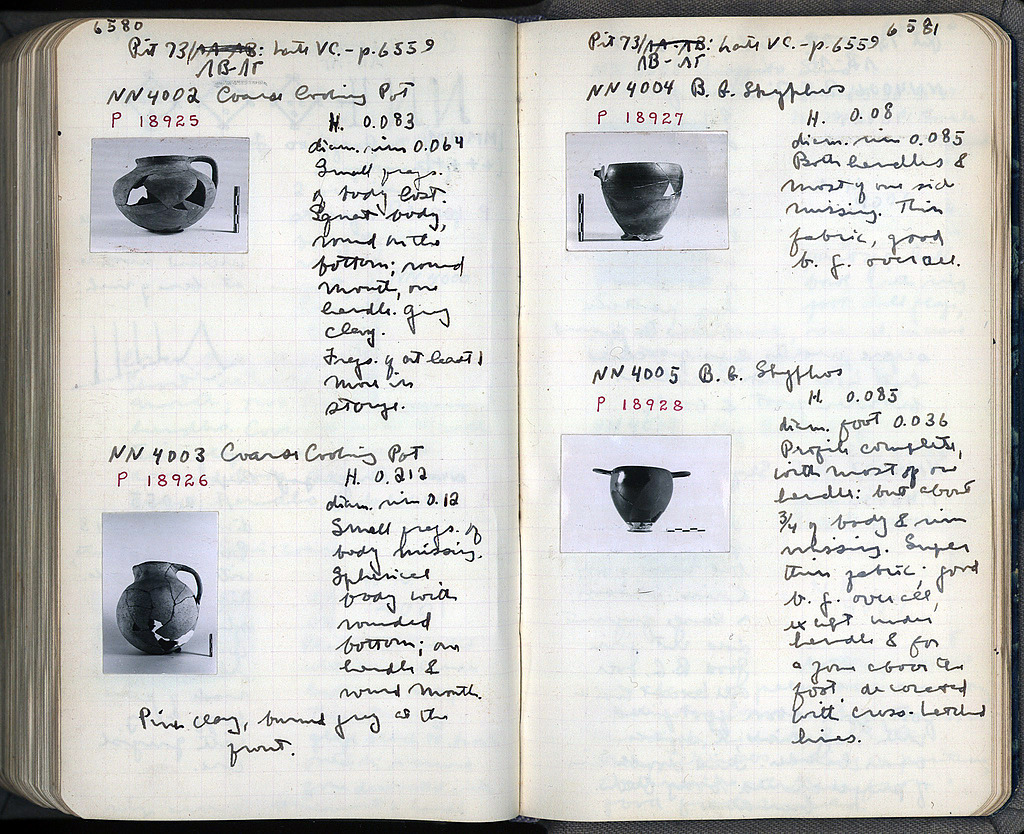 6580
Pit 73/ΛA-ΛB: Late V C. - p. 6559
ΛB-ΛΓ
NN 4002 Coarse Cooking Pot
P 18925
H. 0.083
diam. rim 0.064
Small frags.
of body lost.
Squat body,
round on the
bottom; round
mouth, one
handle. Grey
clay.
Frags. of at least 1
more in
storage.
NN 4003 Coarse Cooking Pot
P 18926
H. 0.212
diam. rim 0.12
Small frags. of
body missing.
Spherical
body with
rounded
bottom; one
handle &
round mouth.
Pink clay, burned grey at the
front.
6581
Pit 73/ΛA-ΛB: Late V C. - p. 6559
ΛB-ΛΓ
NN 4004 B. G. Skyphos
P 18927
H. 0.08
diam. rim 0.085
Both handles &
most of one side
missing. Thin
fabric, good
b. g. overall.
NN 4005 B. G. Skyphos
P 18928
H. 0.085
diam. foot 0.036
Profile complete,
with most of one
handle: but about
3/4 of body & rim
missing. Super
thin fabric; good
b. g. overall,
except under
handle & for
a zone above the
foot decorated
with cross-hatched
lines.